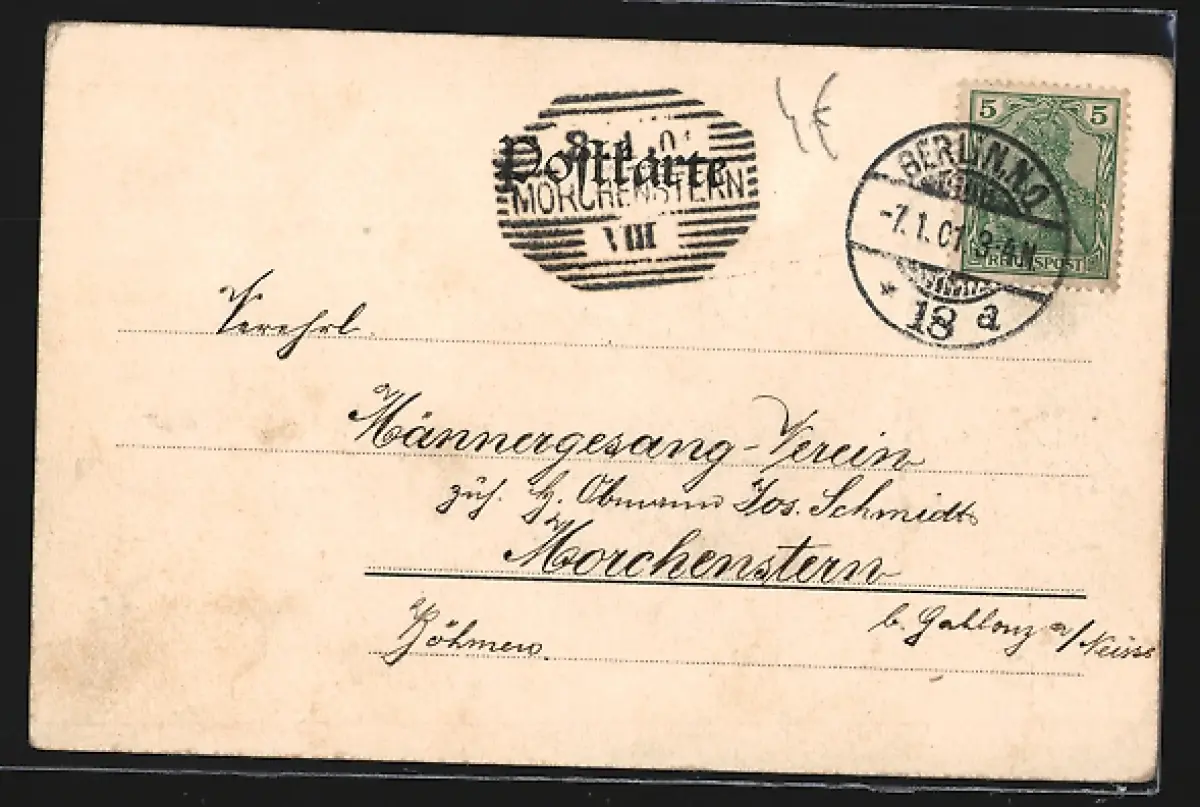 4 €
5 5
BERLIN. N.O.
-7.1.01. 3-4N
REICHSPOST
* 18 a
Postkarte
8 1 01
MORCHENSTERN
VIII
Verehrl.
Männergesang-Verein
zuh. H. Obmann Jos. Schmidt
Morchenstern
b. Gablonz a/Neisse
Böhmen